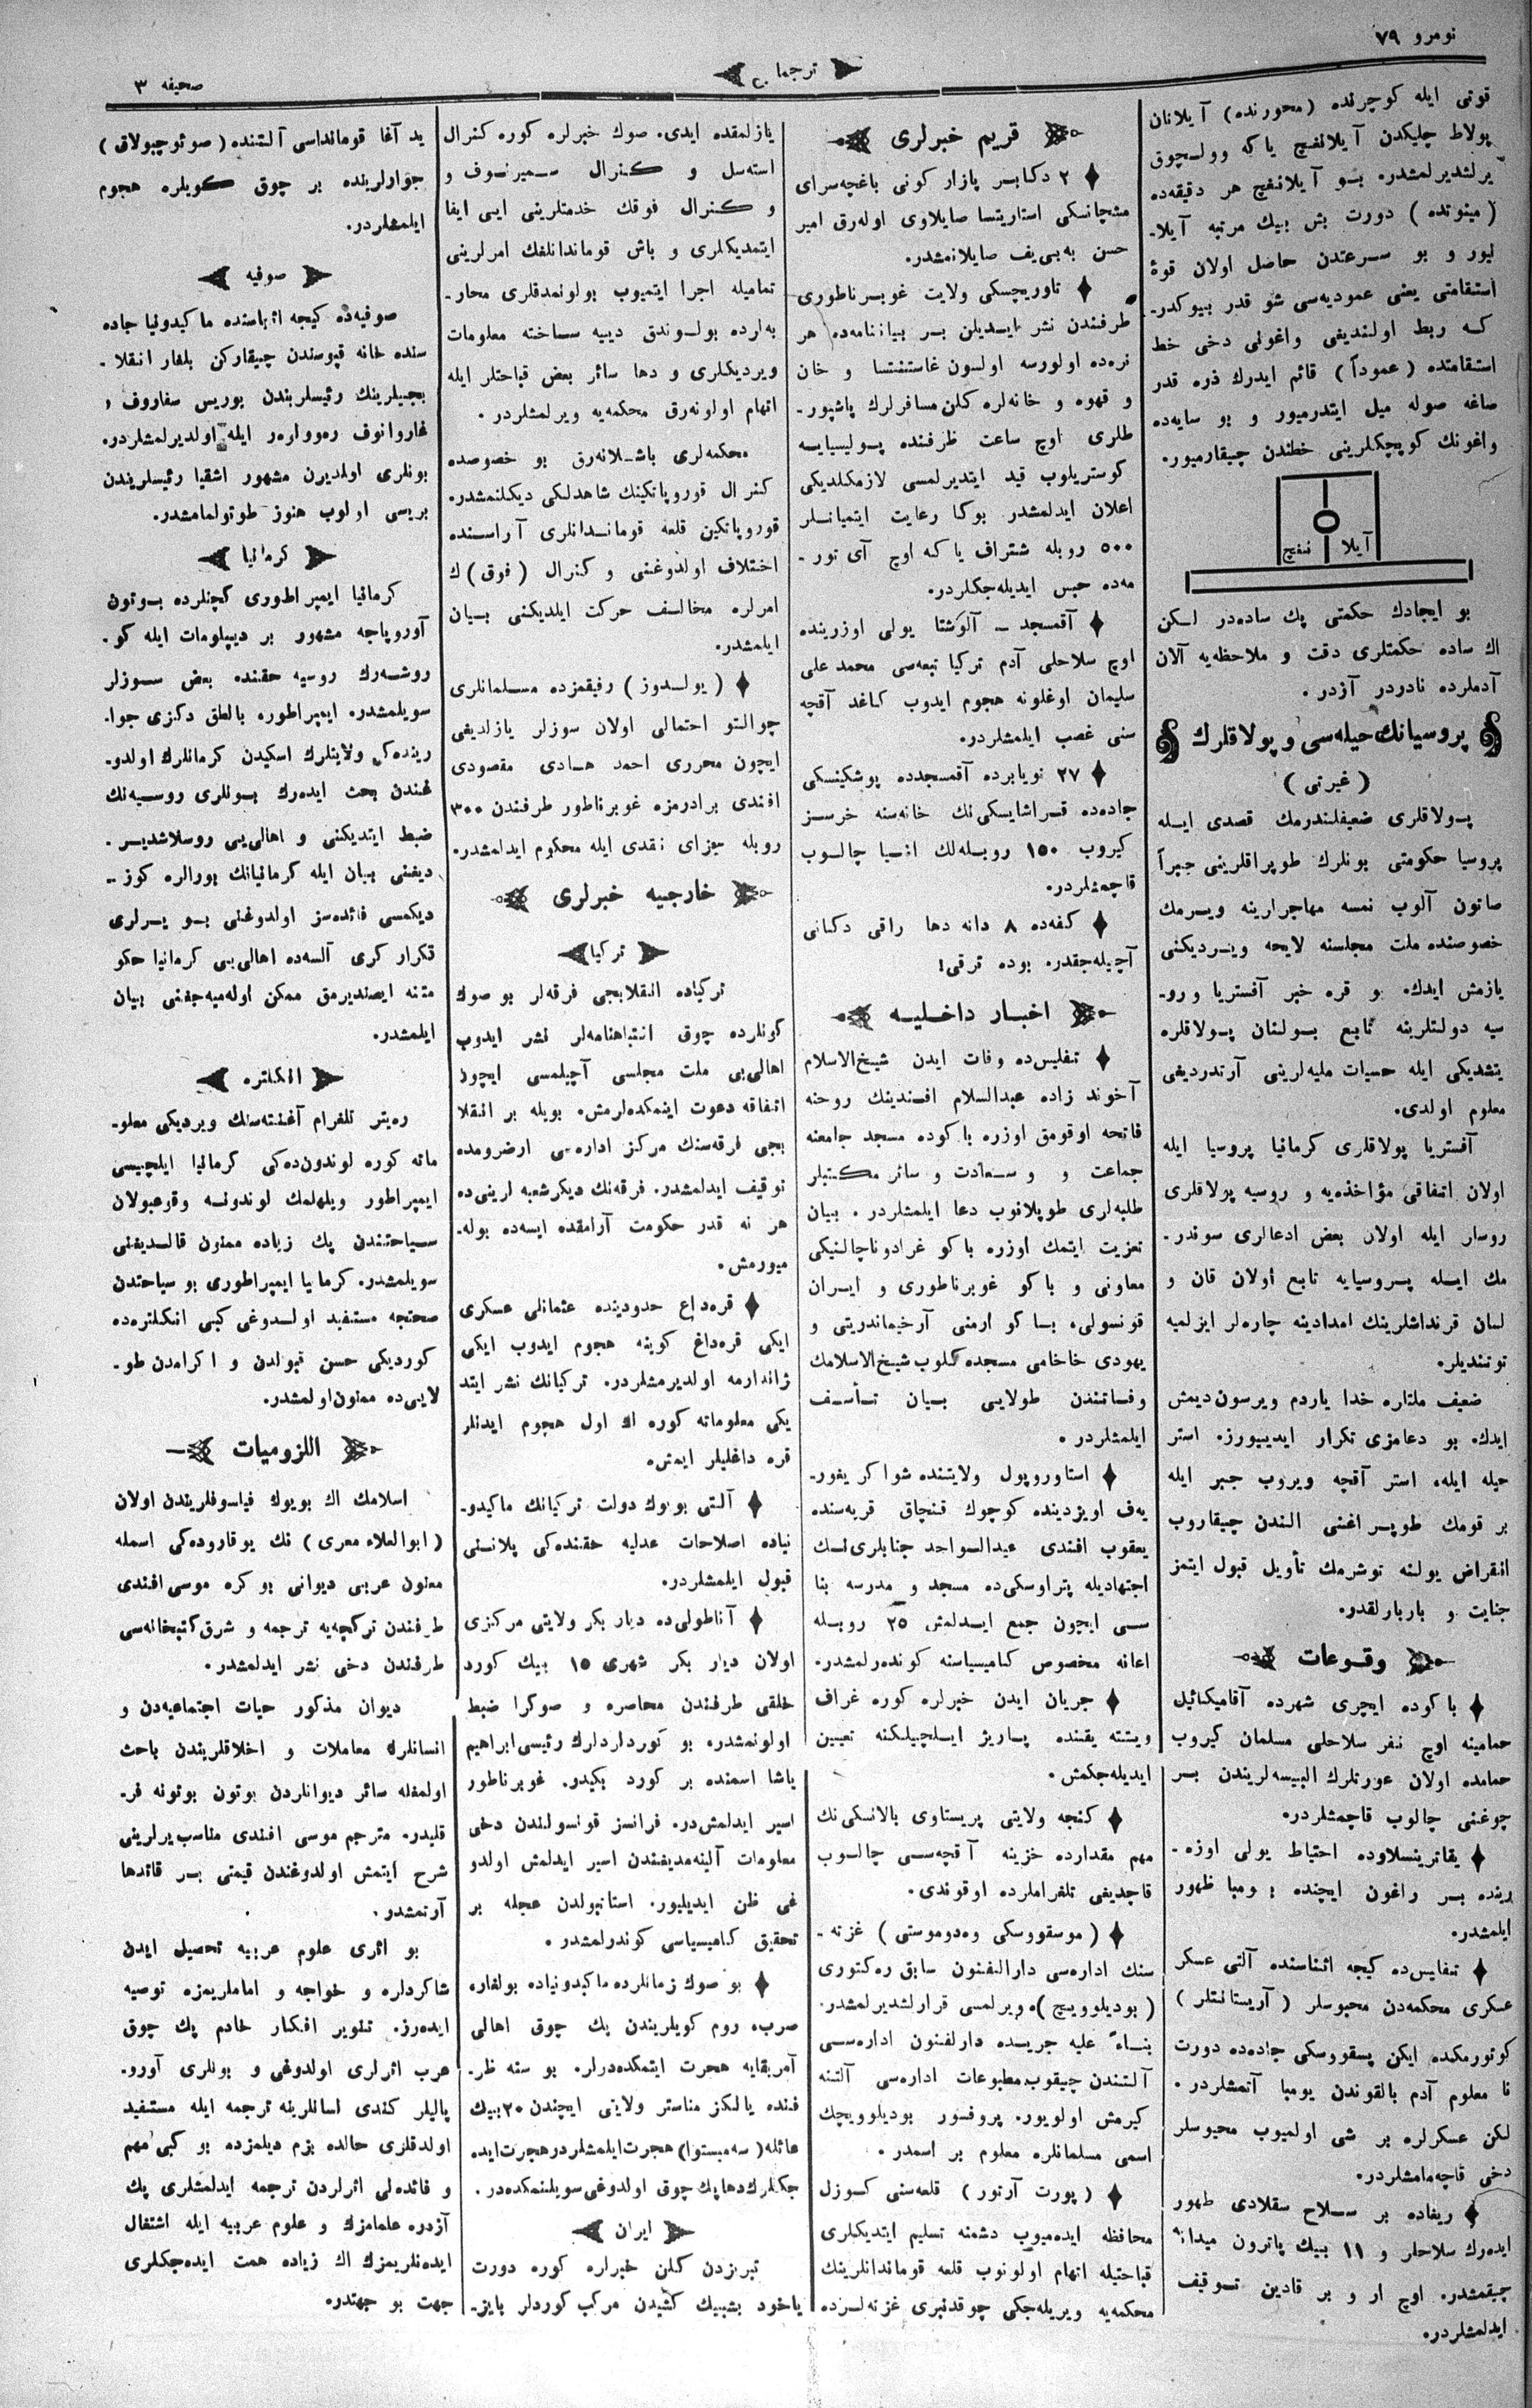 نومرو ٧٩
ترجمان
صحيفه ٣
قوتی ايله كوچرنده (محورنده) آيلانان
پولاط چليكدن آيلانغچ ياكه وولچوق
يرلشديرلمشدر. بو آيلانغچ هر دقيقه‌ده
(مينوتده) دورت بش بيك مرتبه آيلا-
نيور و بو سرعتدن حاصل اولان قوۀ
استقامتی يعنی عموديه‌سی شو قدر بيوكدر-
كه ربط اولنديغی واغونی دخی خط
استقامتده (عموداً) قائم ايدرك ذره قدر
صاغه صوله ميل ايتدرميور و بو سايه‌ده
واغونك كوپچكلرينی خطندن چيقارميور.
آيلا نغچ
بو ايجادك حكمتی پك ساده‌در لكن
اك ساده حكمتلری دقت و ملاحظه‌يه آلان
آدملرده نادردر آزدر.
پروسيانك حيله‌سی و پولاقلرك
(غيرتی)
پولاقلری ضعيفلندرمك قصدی ايله
پروسيا حكومتی بونلرك طوپراقلرينی جبراً
صاتون آلوب نمسه مهاجرلرينه ويرمك
خصوصنده ملت مجلسنه لايحه ويرديكنی
يازمش ايدك. بو قره خبر آفستريا و رو-
سيه دولتلرينه تابع بولنان پولاقلره
يتشديكی ايله حسيات مليه‌لرينی آرتدرديغی
معلوم اولدی.
آفستريا پولاقلری كرمانيا پروسيا ايله
اولان اتفاقی مؤاخذه‌يه و روسيه پولاقلری
روسلر ايله اولان بعض ادعالری سوندر-
مك ايله پروسيايه تابع اولان قان و
لسان قرنداشلرينك امدادينه چاره‌لر ايزلميه
توتنديلر.
ضعيف ملتلره خدا ياردم ويرسون ديمش
ايدك. بو دعامزی تكرار ايديیورز. استر
حيله ايله، استر آقچه ويروب جبر ايله
بر قومك طوپراغنی الندن چيقاروب
انقراض يولنه توشرمك تأويل قبول ايتمز
جنايت و باربارلقدر.
وقوعات
باكوده ايچری شهرده آقاميكائيل
حمامينه اوچ نفر سلاحلی مسلمان كيروب
حمامده اولان عورتلرك البيسه‌لريندن بر
چوغنی چالوب قاچمشلردر.
يقاترينسلاوده احتياط يولی اوزه-
رينده بر واغون ايچنده بومبا ظهور
ايلمشدر.
تفليس‌ده كيجه اثناسنده آلتی عسكر
عسكری محكمه‌دن محبوسلر (آريستانتلر)
كوتورمكده ايكن پسقووسكی جاده‌ده دورت
نا معلوم آدم بالقوندن بومبا آتمشلردر.
لكن عسكرلره بر شی اولميوب محبوسلر
دخی قاچه‌مامشلردر.
ريغاده بر سلاح سقلادی ظهور
ايدەرك سلاحلر و ١١ بيك پاترون ميدانه
چيقمشدر. اوچ ار و بر قادين توقيف
ايدلمشلردر.
قريم خبرلری
٢ دكابر پازار كونی باغچه‌سرای
مشچانسكی استاريتسا صايلاوی اوله‌رق امير
حسن به‌بی‌يف صايلانمشدر.
تاوريچسكی ولايت غوبرناطوری
طرفندن نشر ايديلن بر بياننامه‌ده هر
نره‌ده اولورسه اولسون غاستنتسا و خان
و قهوه و خانه‌لره كلن مسافرلرك پاشپور-
طلری اوچ ساعت ظرفنده پوليسيايه
كوستريلوب قيد ايتديرلمسی لازمكلديكی
اعلان ايدلمشدر بوكا رعايت ايتميانلر
٥٠٠ روبله شتراف ياكه اوچ آی تور-
مه‌ده حبس ايديله‌جكلردر.
آقمسجد ــ آلوشتا يولی اوزرينده
اوچ سلاحلی آدم تركيا تبعه‌سی محمد علی
سليمان اوغلونه هجوم ايدوب كاغد آقچه
سنی غصب ايلمشلردر.
٢٧ نويابرده آقمسجدده پوشكينسكی
جاده‌ده قراشايسكی‌نك خانه‌سنه خرسز
كيروب ١٥٠ روبله‌لك اشيا چالوب
قاچمشلردر.
كفه‌ده ٨ دانه دها راقی دكانی
آچيله‌جقدر. بوده ترقی!
اخبار داخليه
تفليس‌ده وفات ايدن شيخ‌الاسلام
آخوند زاده عبدالسلام افندينك روحنه
فاتحه اوقومق اوزره باكوده مسجد جامعنه
جماعت و و سعادت و سائر مكتبلر
طلبه‌لری طوپلانوب دعا ايلمشلردر. بيان
تعزيت ايتمك اوزره باكو غرادوناچالنيكی
معاونی و باكو غوبرناطوری و ايران
قونسولی، باكو ارمنی آرخيماندريتی و
يهودی خاخامی مسجده كلوب شيخ‌الاسلامك
وفاتندن طولايی بيان تأسف
ايلمشلردر.
استاوروپول ولايتنده شواكر يفور-
يه‌ف اويزدينده كوچوك قنچاق قريه‌سنده
يعقوب افندی عبدالواحد جنابلری‌نك
اجتهاديله پتراوسكی‌ده مسجد و مدرسه بنا
سی ايچون جمع ايدلمش ٢٥ روبله
اعانه مخصوص كاميسياسنه كوندەرلمشدر.
جريان ايدن خبرلره كوره غراف
ويتته يقنده پاريژ ايلچيلكنه تعيين
ايديله‌جكمش.
كنجه ولايتی پريستاوی بالانسكی‌نك
مهم مقدارده خزينه آقچه‌سی چالوب
قاچديغی تلغراملرده اوقوندی.
(موسقووسكی وه‌دوموستی) غزته-
سنك اداره‌سی دارالفنون سابق ره‌كتوری
(بوديلوويچ)ه ويرلمسی قرارلشديرلمشدر.
بناءً عليه جريده دارلفنون اداره‌سی
آلتندن چيقوب مطبوعات اداره‌سی آلتنه
كيرمش اولويور. پروفسور بوديلوويچك
اسمی مسلمانلره معلوم بر اسمدر.
(پورت آرتور) قلعه‌سنی كوزل
محافظه ايده‌ميوب دشمنه تسليم ايتديكلری
قباحتيله اتهام اولونوب قلعه قوماندانلرينك
محكمه‌يه ويريله‌جكی چوقدنبری غزته‌لرده
يازلمقده ايدی. صوك خبرلره كوره كنرال
استه‌سل و كنرال سميرنوف و
و كنرال فوقك خدمتلرينی ايی ايفا
ايتمديكلری و باش قوماندانلغك امرلرينی
تماميله اجرا ايتميوب بولونمدقلری محار-
به‌لرده بولوندق دييه ساخته معلومات
ويرديكلری و دها سائر بعض قباحتلر ايله
اتهام اولونه‌رق محكمه‌يه ويرلمشلردر.
محكمه‌لری باشلانه‌رق بو خصوصده
كنرال قوروپاتكينك شاهدلكی ديكلنمشدر.
قوروپاتكين قلعه قوماندانلری آراسنده
اختلاف اولدوغنی و كنرال (فوق)ك
امرلره مخالف حركت ايلديكنی بيان
ايلمشدر.
(يولدوز) رفيقمزده مسلمانلری
چوالتو احتمالی اولان سوزلر يازلديغی
ايچون محرری احمد هادی مقصودی
افندی برادرمزه غوبرناطور طرفندن ٣٠٠
روبله جزای نقدی ايله محكوم ايدلمشدر.
خارجيه خبرلری
تركيا
تركياده انقلابجی فرقه‌لر بو صوك
كونلرده چوق انتباهنامه‌لر نشر ايدوب
اهالی‌يی ملت مجلسی آچيلمسی ايچون
اتفاقه دعوت ايتمكده‌لرمش. بويله بر انقلا
بجی فرقه‌سنك مركز اداره‌سی ارضرومده
توقيف ايدلمشدر. فرقه‌نك ديكر شعبه لرينی‌ده
هر نه قدر حكومت آرامقده ايسه‌ده بوله-
ميورمش.
قره‌داغ حدودينده عثمانلی عسكری
ايكی قره‌داغ كوينه هجوم ايدوب ايكی
ژاندارمه اولديرمشلردر. تركيانك نشر ايتد
يكی معلوماته كوره اك اول هجوم ايدنلر
قره داغليلر ايمش.
آلتی بويوك دولت تركيانك ماكيدو-
نياده اصلاحات عدليه حقنده‌كی پلاننی
قبول ايلمشلردر.
آناطولی‌ده ديار بكر ولايتی مركزی
اولان ديار بكر شهری ١٥ بيك كورد
خلقی طرفندن محاصره و صوكرا ضبط
اولونمشدر. بو كوردلرك رئيسی ابراهيم
پاشا اسمنده بر كورد بكيدر. غوبرناطور
اسير ايدلمش‌در. فرانسز قونسولندن دخی
معلومات آلينه‌مديغندن اسير ايدلمش اولدو
غی ظن ايديليور. استانبولدن عجله بر
تحقيق كاميسياسی كوندرلمشدر.
بو صوك زمانلرده ماكيدونياده بولغار،
صرب، روم كويلريندن پك چوق اهالی
آمريقايه هجرت ايتمكده‌درلر. بو سنه ظر-
فنده يالكز مناستر ولايتی ايچندن ٢٠ بيك
عائله (سه‌ميستوا) هجرت ايلمشلردر هجرت ايده
جكلرك دها پك چوق اولدوغی سويلنمكده‌در.
ايران
تبريزدن كلن خبرلره كوره دورت
ياخود بشبيك كشيدن مركب كوردلر پايز-
يد آغا قومانداسی آلتنده (صوئوجبولاق)
جوارلرينده بر چوق كويلره هجوم
ايلمشلردر.
صوفيه
صوفيه‌ده كيجه اثناسنده ماكيدونيا جاده
سنده خانه قپوسندن چيقاركن بلغار انقلا-
بجيلرينك رئيسلريندن بوريس سفاروف و
غاروانوف ره‌وولوه‌ر ايله اولديرلمشلردر.
بونلری اولديرن مشهور اشقيا رئيسلريندن
بريسی اولوب هنوز طوتولمامشدر.
كرمانيا
كرمانيا ايمپراطوری كچنلرده بوتون
آوروپاجه مشهور بر ديپلومات ايله كو-
روشه‌رك روسيه حقنده بعض سوزلر
سويلمشدر. ايمپراطوره بالطق دكزی جوا-
رينده‌كی ولايتلرك اسكيدن كرمانلرك اولدو-
غندن بحث ايده‌رك بونلری روسيه‌نك
ضبط ايتديكنی و اهالی‌يی روسلاشدير-
ديغنی بيان ايله كرمانيانك بورالره كوز-
ديكمسی فائده‌سز اولدوغنی بو يرلری
تكرار كری آلسه‌ده اهالی‌يی كرمانيا حكو
متنه ايصنديرمق ممكن اوله‌ميه‌جغنی بيان
ايلمشدر.
انكلتره
ره‌يتر تلغرام آغنته‌سنك ويرديكی معلو-
ماته كوره لوندون‌ده‌كی كرمانيا ايلچيسی
ايمپراطور ويلهلمك لوندونه وقوعبولان
سياحتندن پك زياده ممنون قالديغنی
سويلمشدر. كرمانيا ايمپراطوری بو سياحتدن
صحتجه مستفيد اولدوغی كبی انكلتره‌ده
كورديكی حسن قبولدن و اكرامدن طو-
لايی‌ده ممنون اولمشدر.
اللزوميات
اسلامك اك بويوك فيلسوفلريندن اولان
(ابوالعلاء معری) نك يوقاروده‌كی اسمله
معنون عربی ديوانی بو كره موسی افندی
طرفندن تركچه‌يه ترجمه و شرق كتبخانه‌سی
طرفندن دخی نشر ايدلمشدر.
ديوان مذكور حيات اجتماعيه‌دن و
انسانلرك معاملات و اخلاقلريندن باحث
اولمغله سائر ديوانلردن بوتون بوتونه فر-
قليدر. مترجم موسی افندی مناسب يرلرينی
شرح ايتمش اولدوغندن قيمتی بر قاتدها
آرتمشدر.
بو اثری علوم عربيه تحصيل ايدن
شاكردلره و خواجه و اماملريمزه توصيه
ايده‌رز. تنوير افكار خادم پك چوق
عرب اثرلری اولدوغی و بونلری آورو-
پاليلر كندی لسانلرينه ترجمه ايله مستفيد
اولدقلری حالده بزم ديلمزده بو كبی مهم
و فائده‌لی اثرلردن ترجمه ايدلمشلری پك
آزدر. علمامزك و علوم عربيه ايله اشتغال
ايده‌نلريمزك اك زياده همت ايده‌جكلری
جهت بو جهتدر.